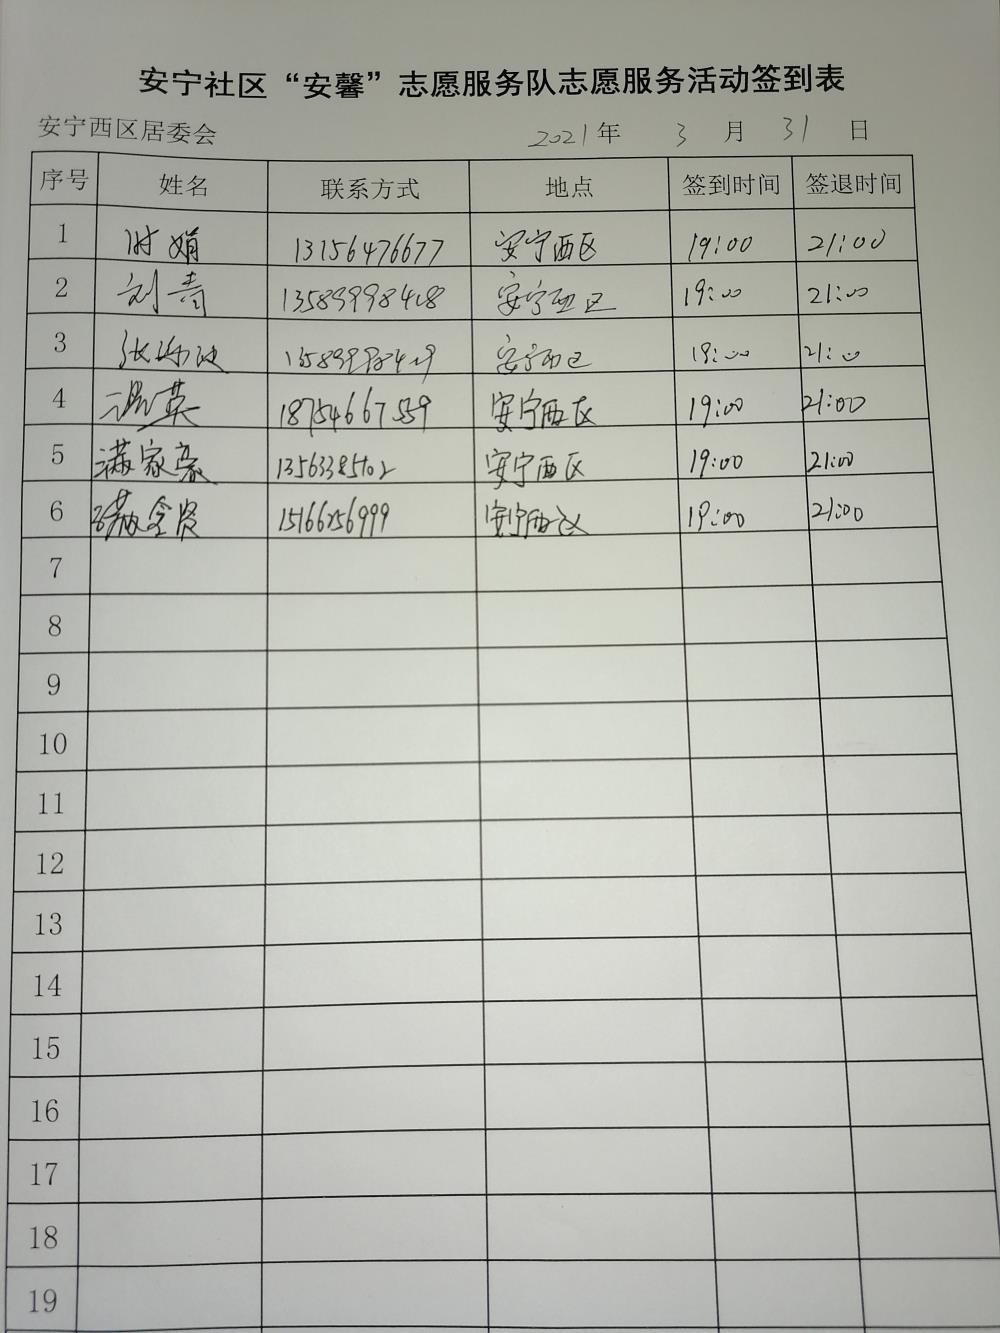 安宁社区“安馨”志愿服务队志愿服务活动签到表
安宁西区居委会 2021年 3 月 31 日
序号 姓名 联系方式 地点 签到时间 签退时间
1 时娟 13156476677 安宁西区 19:00 21:00
2 刘青 13589998418 安宁西区 19:00 21:00
3 安宁西区 19:00 21:00
4 18754667559 安宁西区 19:00 21:00
5 满家豪 安宁西区 19:00 21:00
6 15166256999 安宁西区 19:00 21:00
7
8
9
10
11
12
13
14
15
16
17
18
19